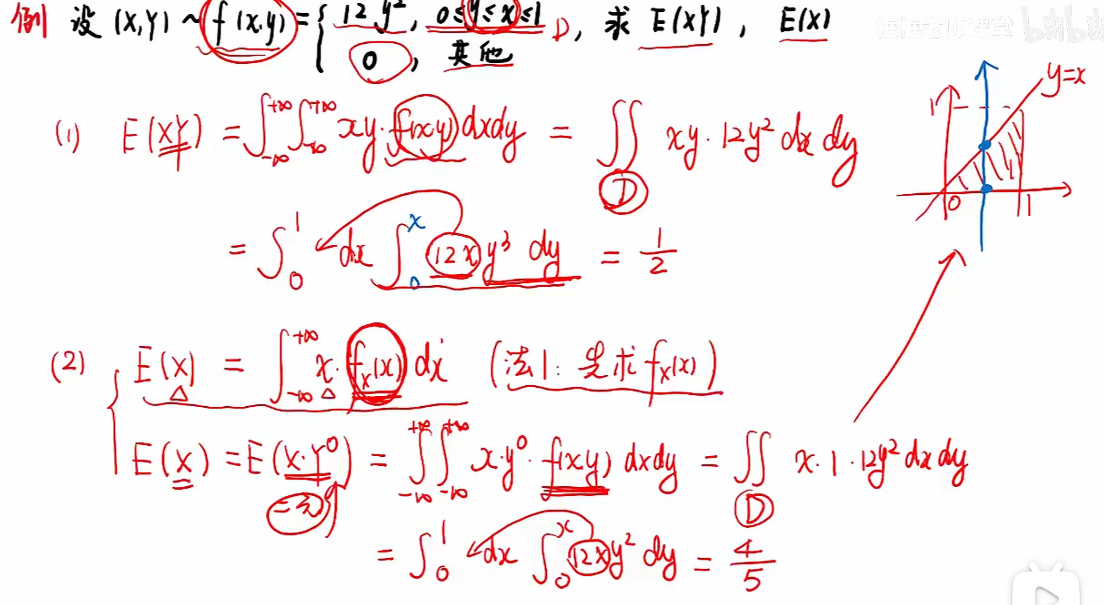 例 设 (X,Y) ~ f(x,y) = { 12y², 0≤y≤x≤1 D, 求 E(XY), E(X)
0, 其他
y=x
1
0
1
(1) E(XY) = ∫_{-∞}^{+∞}∫_{-∞}^{+∞} xy·f(xy)dxdy = ∬_D xy·12y² dx dy
= ∫_0^1 dx ∫_0^x 12x y³ dy = 1/2
(2) { E(X) = ∫_{-∞}^{+∞} x·f_X(x) dx (法1: 先求f_X(x))
E(X) = E(X·Y⁰) = ∫_{-∞}^{+∞}∫_{-∞}^{+∞} x·y⁰·f(xy) dxdy = ∬_D x·1·12y² dx dy
= ∫_0^1 dx ∫_0^x 12x y² dy = 4/5